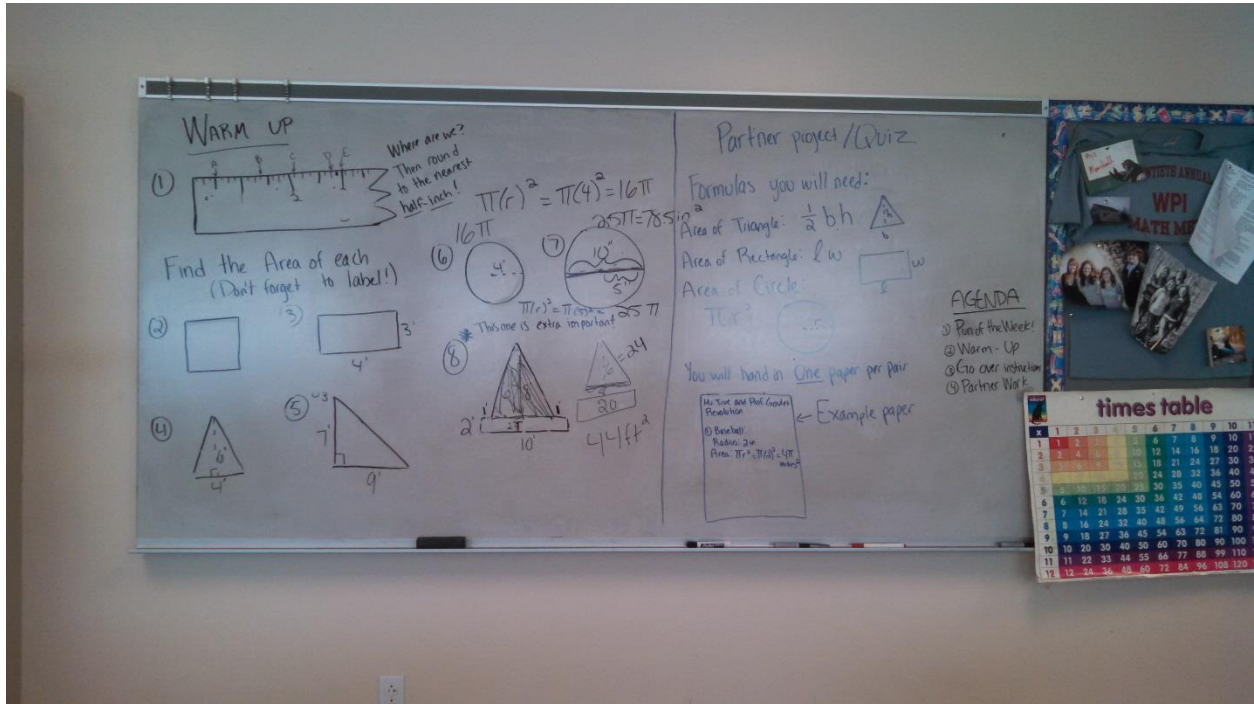 WARM UP
①
A B C D E
2
Where are we?
Then round
to the nearest
half-inch!
Find the Area of each
(Don't forget to label!)
②
③
3'
4'
④
6'
4'
⑤
7'
9'
π(r)² = π(4)² = 16π
16π
⑥
4'
25π=78.5 in²
⑦
10"
5"
π(r)² = π(5)² = 25π
* This one is extra important!
⑧
2'
10'
= 24
20
44ft²
Partner project/Quiz
Formulas you will need:
Area of Triangle: ½ bh
h
b
Area of Rectangle: l w
w
l
Area of Circle:
πr²
You will hand in One paper per pair
Mr. True and Prof.
Revolution
① Baseball
Radius: 2in
Area: πr² = π(2)² = 4π
inches²
← Example paper
AGENDA
① Pun of the Week!
② Warm-Up
③ Go over instructions
④ Partner Work
WPI
MATH ME
times table
x 1 2 3 4 5 6 7 8 9 10 11
1 1 2 3 4 5 6 7 8 9 10 1
2 2 4 6 8 10 12 14 16 18 20 2
3 3 6 9 15 18 21 24 27 30 3
4 20 24 28 32 36 40 4
5 5 10 15 20 25 30 35 40 45 50 5
6 6 12 18 24 30 36 42 48 54 60 6
7 7 14 21 28 35 42 49 56 63 70 7
8 8 16 24 32 40 48 56 64 72 80 8
9 9 18 27 36 45 54 63 72 81 90 9
10 10 20 30 40 50 60 70 80 90 100
11 11 22 33 44 55 66 77 88 99 110
12 12 24 36 48 60 72 84 96 108 120